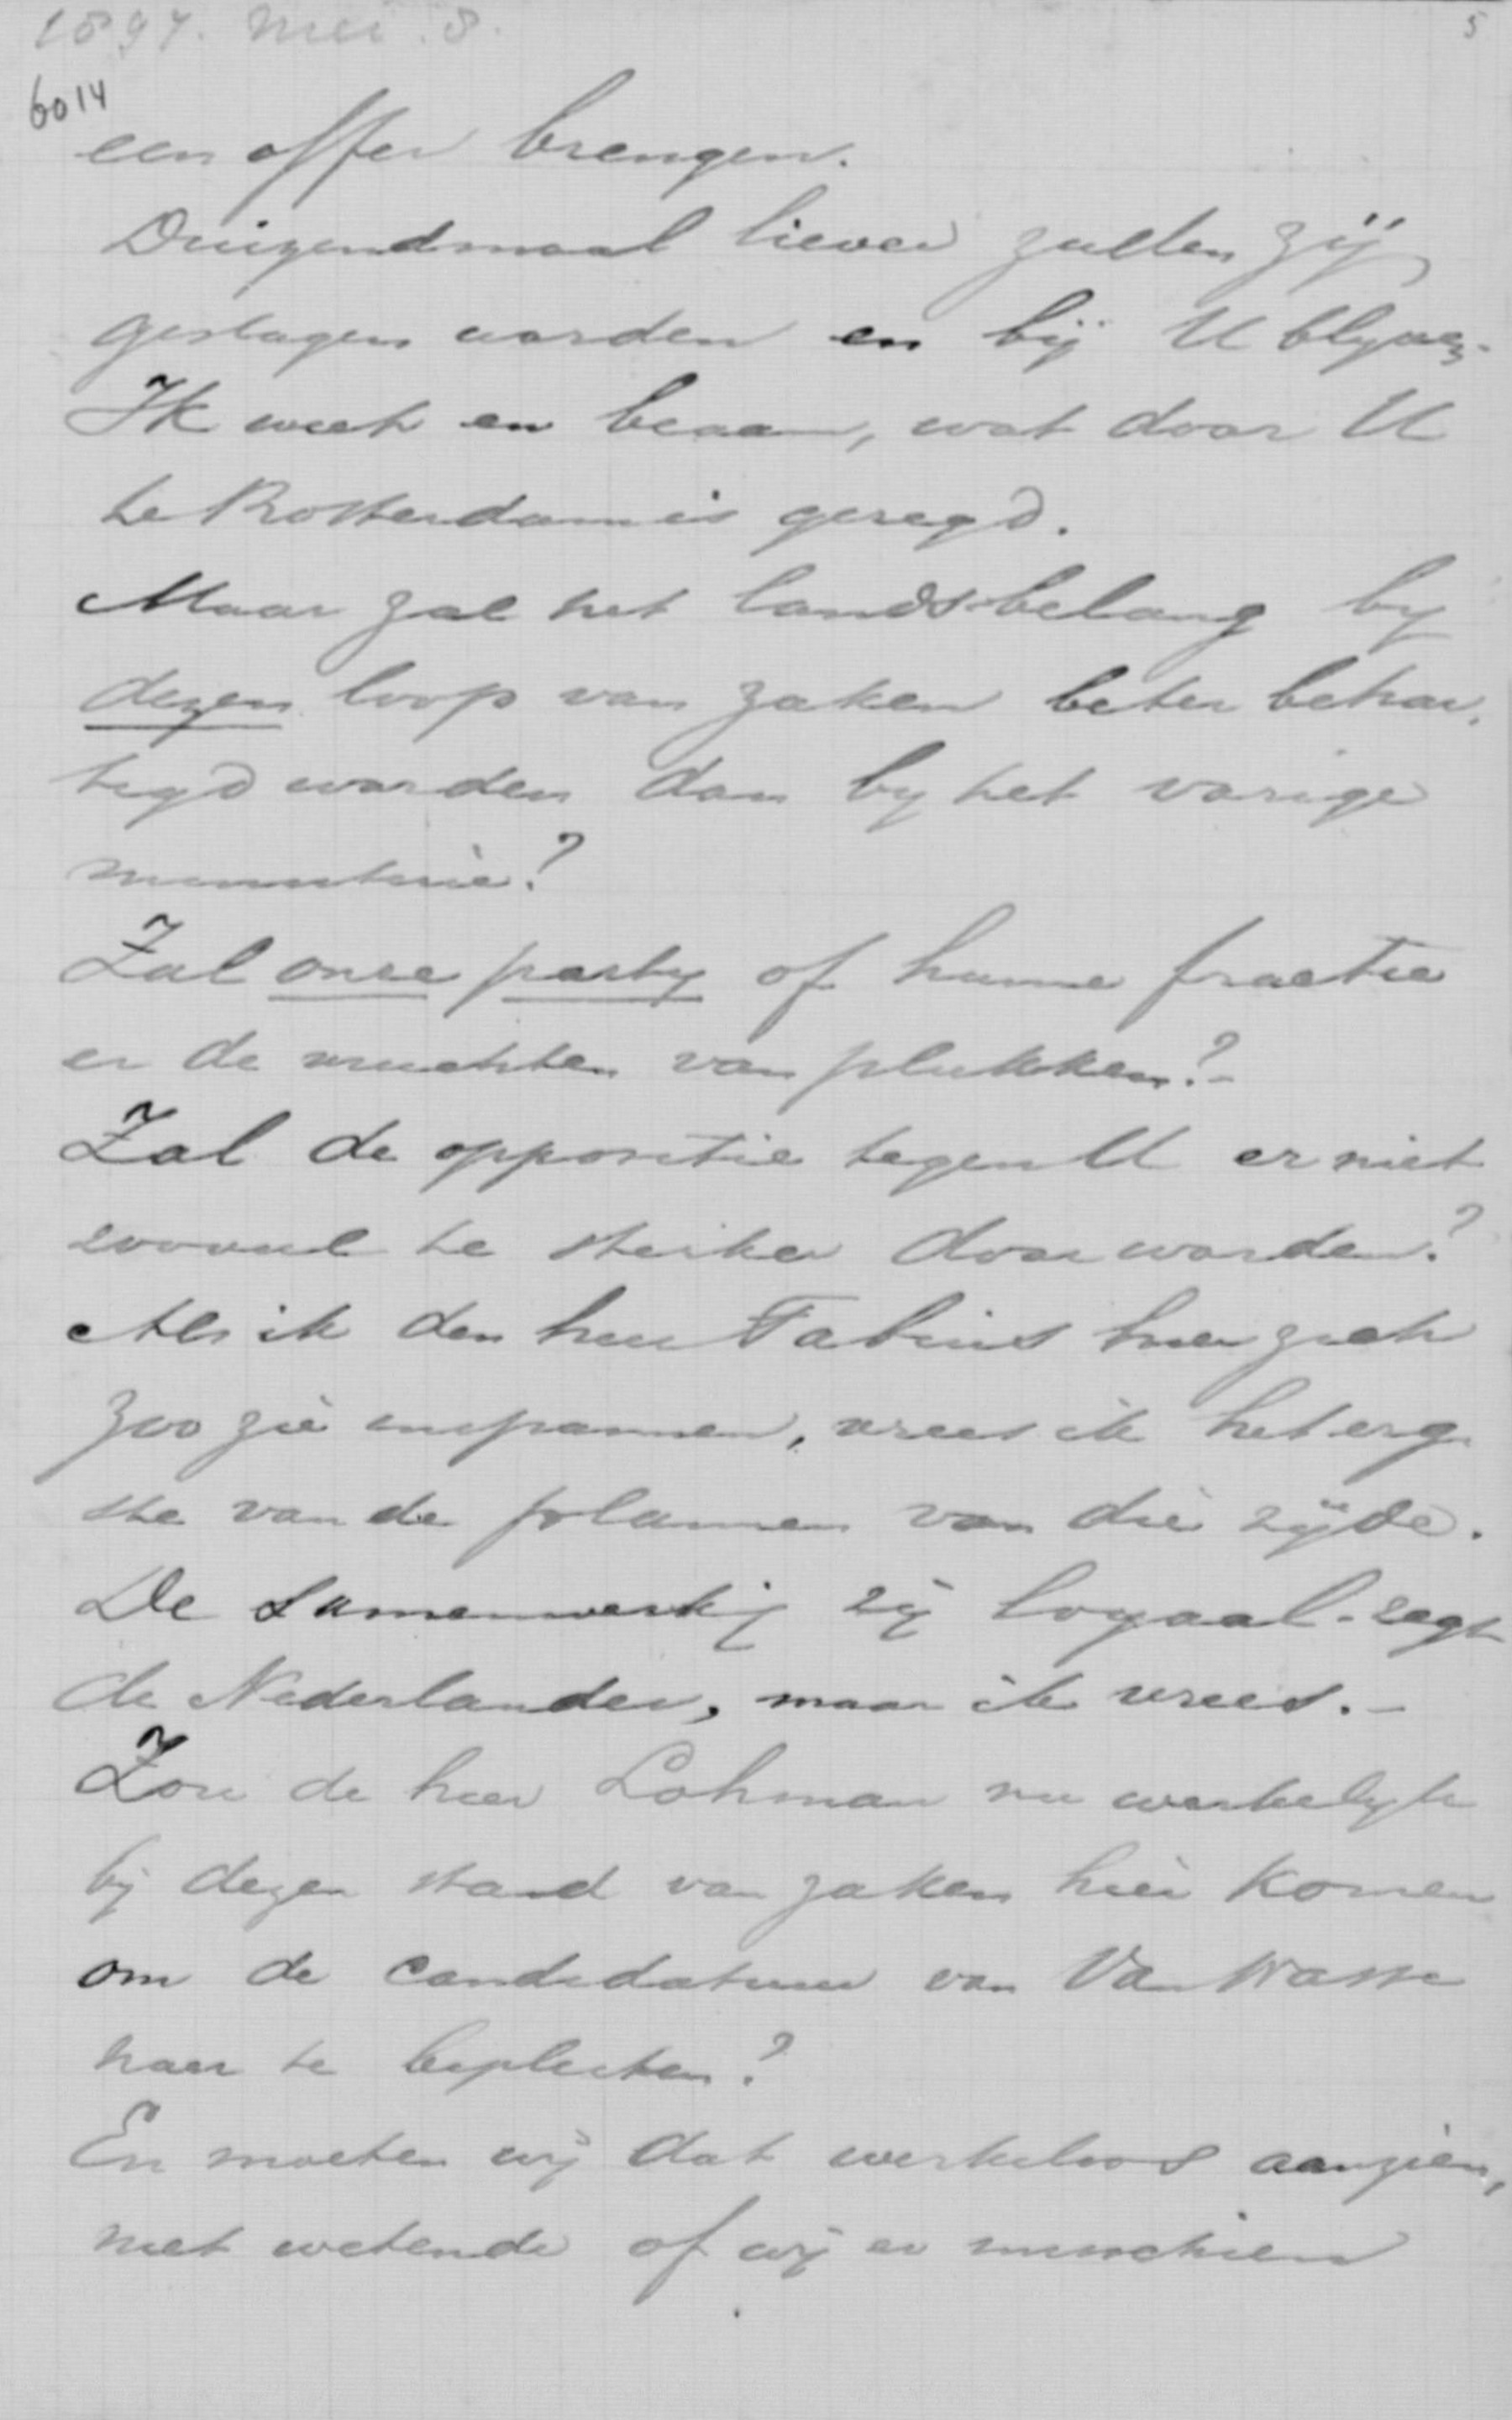 1897. Mei. 8.
5
6014
een offer brengen.
Duizendmaal liever zullen zij
geslagen worden en bij U blyven.
Ik weet en beaam, wat door U
te Rotterdam is gezegd.
Maar zal het landsbelang by
dezen loop van zaken beter behar-
tigd worden dan by het vorige
ministerie?
Zal onze party of hunne fractie
er de vruchten van plukken?-
Zal de oppositie tegen U er niet
zooveel te sterker door worden?
Als ik den heer Fabius hier zich
zoo zie inspannen, vrees ik het erg-
ste van de plannen van die zijde.
De Samenwerkg zij loyaal - zegt
de Nederlander, maar ik vrees.-
Zou de heer Lohman nu werkelyk
bij dezen stand van zaken hier komen
om de candidatuur van Van Wasse
naer te bepleiten?
En moeten wij dat werkeloos aanzien,
niet wetende of wij er misschien